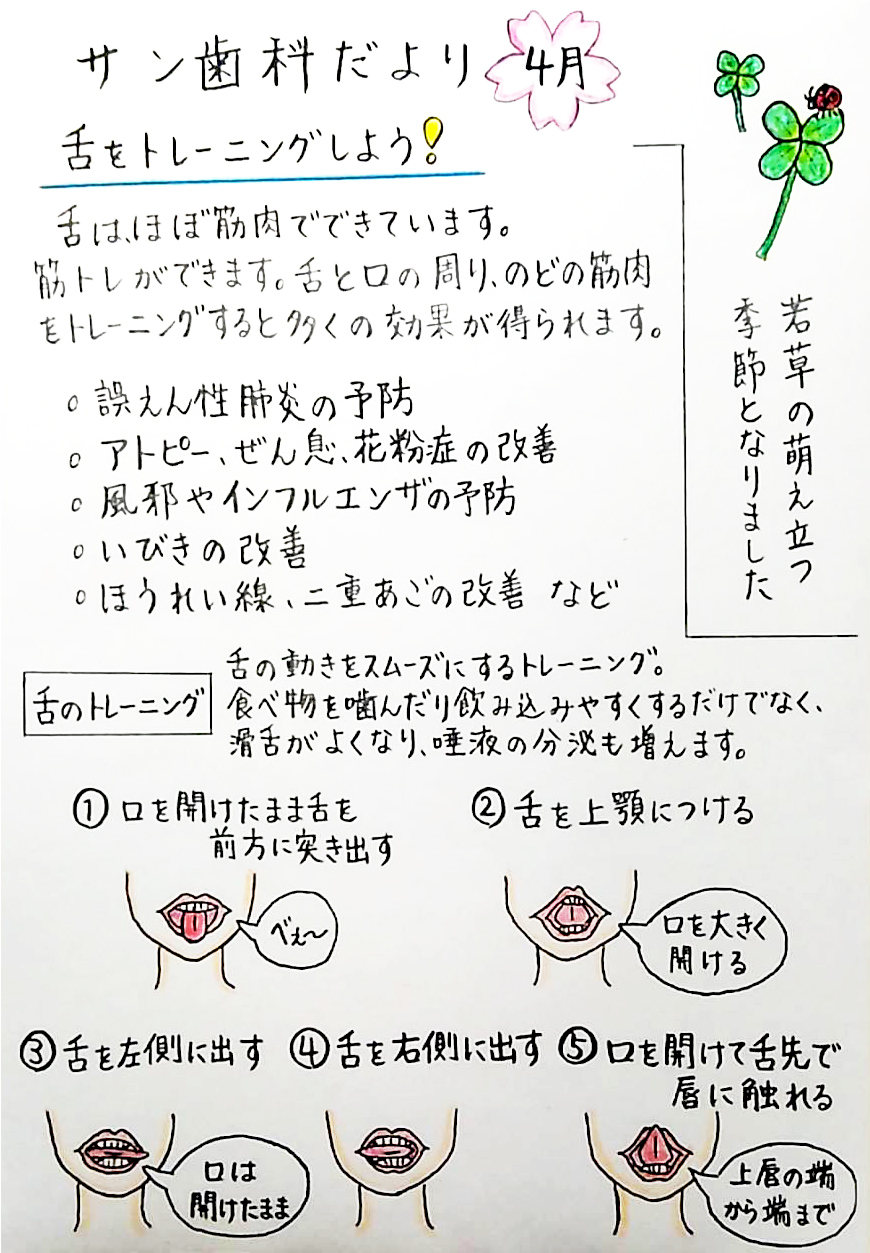 サン歯科だより 4月
舌をトレーニングしよう!
舌は、ほぼ筋肉でできています。
筋トレができます。舌と口の周り、のどの筋肉
をトレーニングすると多くの効果が得られます。
若草の萌え立つ
季節となりました
○ 誤えん性肺炎の予防
○ アトピー、ぜん息、花粉症の改善
○ 風邪やインフルエンザの予防
○ いびきの改善
○ ほうれい線、二重あごの改善 など
舌のトレーニング
舌の動きをスムーズにするトレーニング。
食べ物を噛んだり飲み込みやすくするだけでなく、
滑舌がよくなり、唾液の分泌も増えます。
① 口を開けたまま舌を
前方に突き出す
べぇ〜
② 舌を上顎につける
口を大きく
開ける
③ 舌を左側に出す
口は
開けたまま
④ 舌を右側に出す
⑤ 口を開けて舌先で
唇に触れる
上唇の端
から端まで